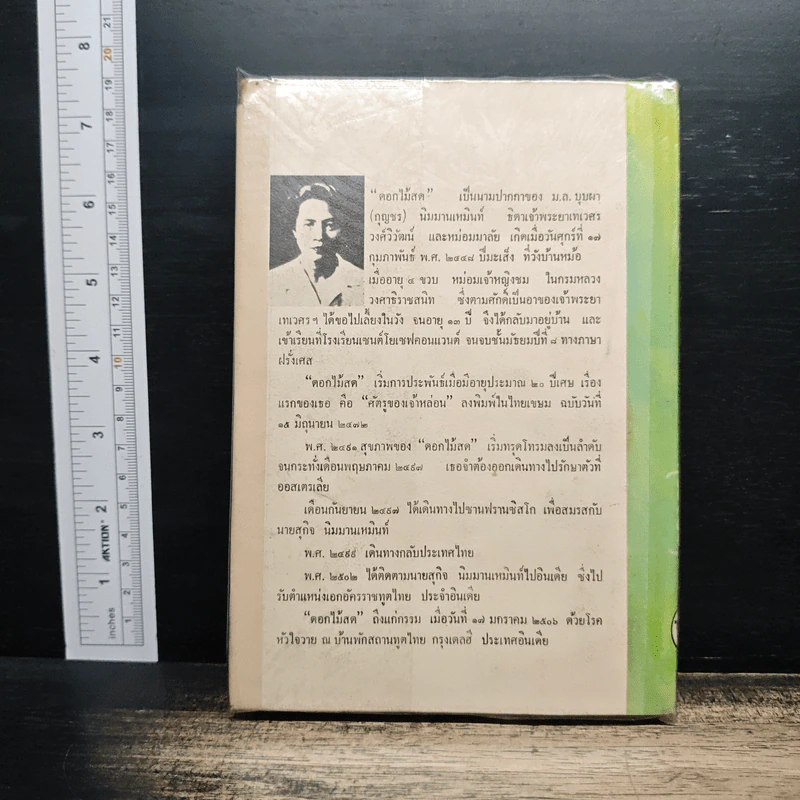 "ดอกไม้สด" เป็นนามปากกาของ ม.ล. บุบผา
(กุญชร) นิมมานเหมินท์ ธิดาเจ้าพระยาเทเวศร
วงศ์วิวัฒน์ และหม่อมมาลัย เกิดเมื่อวันศุกร์ที่ ๑๗
กุมภาพันธ์ พ.ศ. ๒๔๔๘ ปีมะเส็ง ที่วังบ้านหม้อ
เมื่ออายุ ๔ ขวบ หม่อมเจ้าหญิงชม ในกรมหลวง
วงศาธิราชสนิท ซึ่งตามศักดิ์เป็นอาของเจ้าพระยา
เทเวศร ฯ ได้ขอไปเลี้ยงในวัง จนอายุ ๑๓ ปี จึงได้กลับมาอยู่บ้าน และ
เข้าเรียนที่โรงเรียนเซนต์โยเซฟคอนแวนต์ จนจบชั้นมัธยมปีที่ ๘ ทางภาษา
ฝรั่งเศส
"ดอกไม้สด" เริ่มการประพันธ์เมื่อมีอายุประมาณ ๒๐ ปีเศษ เรื่อง
แรกของเธอ คือ "ศัตรูของเจ้าหล่อน" ลงพิมพ์ในไทยเขษม ฉบับวันที่
๑๕ มิถุนายน ๒๔๗๒
พ.ศ. ๒๔๙๑ สุขภาพของ "ดอกไม้สด" เริ่มทรุดโทรมลงเป็นลำดับ
จนกระทั่งเดือนพฤษภาคม ๒๔๙๗ เธอจำต้องออกเดินทางไปรักษาตัวที่
ออสเตรเลีย
เดือนกันยายน ๒๔๙๗ ได้เดินทางไปซานฟรานซิสโก เพื่อสมรสกับ
นายสุกิจ นิมมานเหมินท์
พ.ศ. ๒๔๙๙ เดินทางกลับประเทศไทย
พ.ศ. ๒๕๐๒ ได้ติดตามนายสุกิจ นิมมานเหมินท์ไปอินเดีย ซึ่งไป
รับตำแหน่งเอกอัครราชทูตไทย ประจำอินเดีย
"ดอกไม้สด" ถึงแก่กรรม เมื่อวันที่ ๑๗ มกราคม ๒๕๐๖ ด้วยโรค
หัวใจวาย ณ บ้านพักสถานทูตไทย กรุงเดลฮี ประเทศอินเดีย
21
8
20
19
18
7
17
16
6
15
14
13
5
12
11
4
10
9
8
3
7
6
2
5
4
3
1
2
1
AKTION®
inches